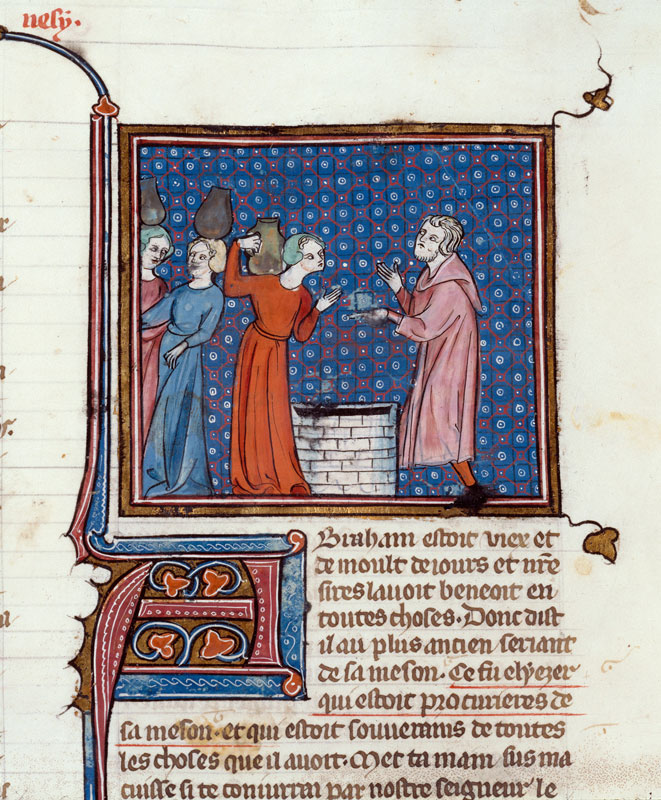 nesy.
ABraham estoit viex et
de moult de iours et nr̄e
sires lauoit beneoit en
toutes choses. Donc dist
il au plus ancien seriant
de sa meson. Ce fu elyezer
qui estoit procurieres de
sa meson. et qui estoit souuerains de toutes
les choses que il auoit. Met ta main sus ma
cuisse si te coniurrai par nostre seigneur le